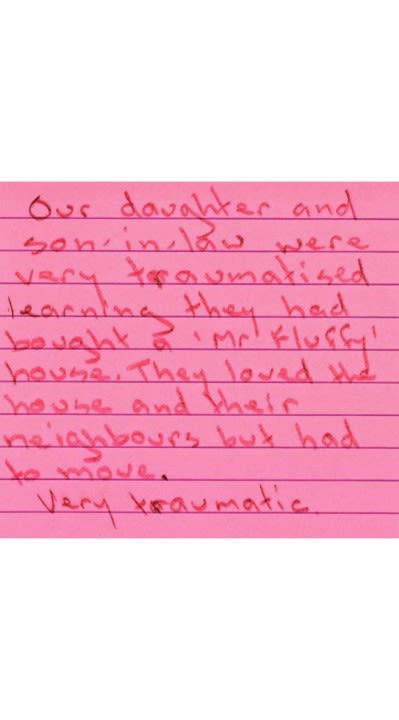 Our daughter and
son-in-law were
very traumatised
learning they had
bought a 'Mr Fluffy'
house. They loved the
house and their
neighbours but had
to move.
Very traumatic.